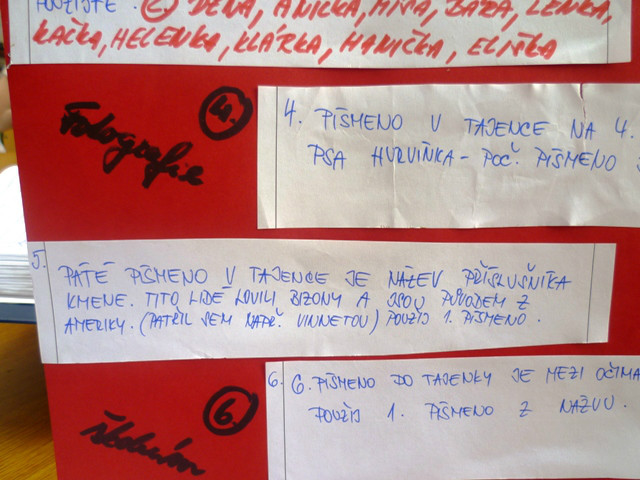 POUŽIJTE. DENA, ANIČKA, MÍŠA, BÁRA, LENKA,
KAČKA, HELENKA, KLÁRKA, HANIČKA, ELIŠKA
4.
Fotografie
4. PÍSMENO V TAJENCE NA 4.
PSA HURVÍNKA - POČ. PÍSMENO
5. PÁTÉ PÍSMENO V TAJENCE JE NÁZEV PŘÍSLUŠNÍKA
KMENE. TITO LIDÉ LOVILI BIZONY A JSOU PŮVODEM Z
AMERIKY. (PATŘIL SEM NAPŘ. VINNETOU) POUŽIJ 1. PÍSMENO.
6.
6. 6. PÍSMENO DO TAJENKY JE MEZI OČIMA
POUŽIJ 1. PÍSMENO Z NÁZVU.